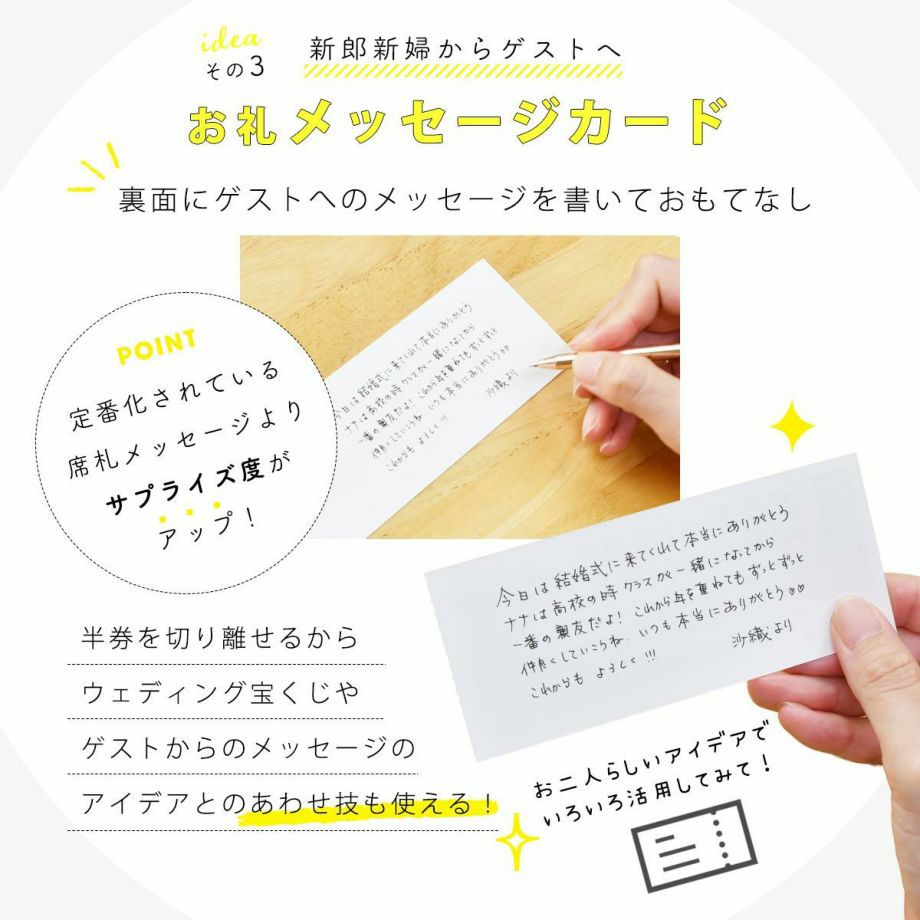 idea
その3
新郎新婦からゲストへ
お礼メッセージカード
裏面にゲストへのメッセージを書いておもてなし
今日は結婚式に来てくれて本当にありがとう
ナナは高校の時クラスが一緒になってから
一番の親友だよ！これから年を重ねてもずっとずっと
仲良くしていこうね、いつも本当にありがとう♡♡
これからも よろしく!!!
沙織より
POINT
定番化されている
席札メッセージより
サプライズ度が
アップ！
今日は結婚式に来てくれて本当にありがとう
ナナは高校の時クラスが一緒になってから
一番の親友だよ！これから年を重ねてもずっとずっと
仲良くしていこうね、いつも本当にありがとう♡♡
これからも よろしく!!!
沙織より
半券を切り離せるから
ウェディング宝くじや
ゲストからのメッセージの
アイデアとのあわせ技も使える！
お二人らしいアイデアで
いろいろ活用してみて！